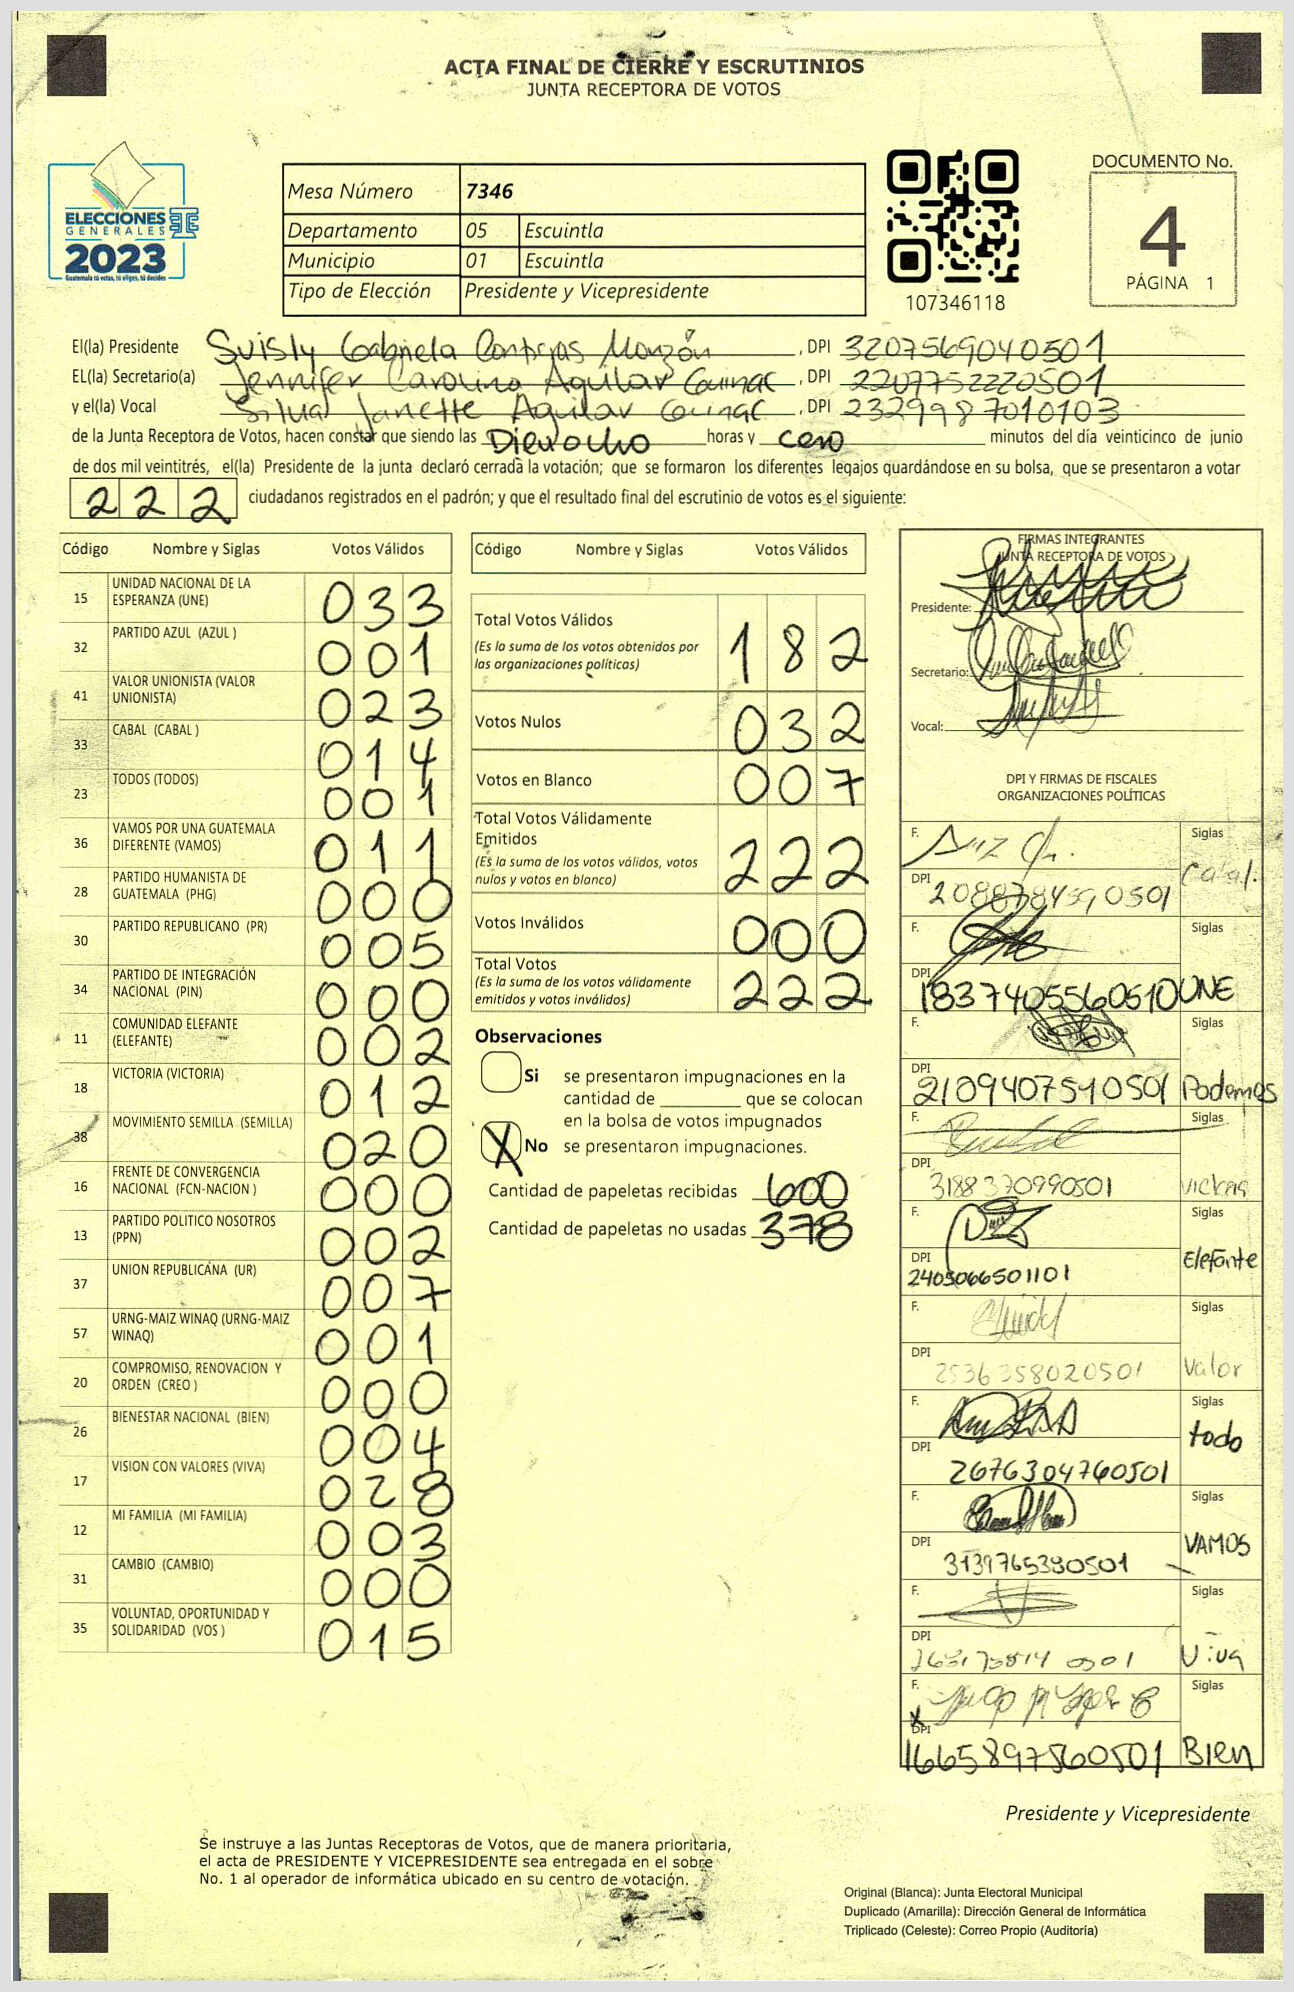 ACTA FINAL DE CIERRE Y ESCRUTINIOS
JUNTA RECEPTORA DE VOTOS
ELECCIONES
GENERALES
2023
Guatemala tú votas, tú eliges, tú decides
Mesa Número 7346
Departamento 05 Escuintla
Municipio 01 Escuintla
Tipo de Elección Presidente y Vicepresidente
107346118
DOCUMENTO No.
4
PÁGINA 1
El(la) Presidente Suisly Gabriela Contreras Monzón, DPI 3207569040501
EL(la) Secretario(a) Jennifer Carolina Aguilar, DPI 2207752220501
y el(la) Vocal Janette Aguilar, DPI 2329987010103
de la Junta Receptora de Votos, hacen constar que siendo las Dieciocho horas y cero minutos del día veinticinco de junio
de dos mil veintitrés, el(la) Presidente de la junta declaró cerrada la votación; que se formaron los diferentes legajos quardándose en su bolsa, que se presentaron a votar
222 ciudadanos registrados en el padrón; y que el resultado final del escrutinio de votos es el siguiente:
Código Nombre y Siglas Votos Válidos
15 UNIDAD NACIONAL DE LA ESPERANZA (UNE) 033
32 PARTIDO AZUL (AZUL ) 001
41 VALOR UNIONISTA (VALOR UNIONISTA) 023
33 CABAL (CABAL ) 014
23 TODOS (TODOS) 001
36 VAMOS POR UNA GUATEMALA DIFERENTE (VAMOS) 011
28 PARTIDO HUMANISTA DE GUATEMALA (PHG) 000
30 PARTIDO REPUBLICANO (PR) 005
34 PARTIDO DE INTEGRACIÓN NACIONAL (PIN) 000
11 COMUNIDAD ELEFANTE (ELEFANTE) 002
18 VICTORIA (VICTORIA) 012
38 MOVIMIENTO SEMILLA (SEMILLA) 020
16 FRENTE DE CONVERGENCIA NACIONAL (FCN-NACION ) 000
13 PARTIDO POLITICO NOSOTROS (PPN) 002
37 UNION REPUBLICANA (UR) 007
57 URNG-MAIZ WINAQ (URNG-MAIZ WINAQ) 001
20 COMPROMISO, RENOVACION Y ORDEN (CREO ) 000
26 BIENESTAR NACIONAL (BIEN) 004
17 VISION CON VALORES (VIVA) 028
12 MI FAMILIA (MI FAMILIA) 003
31 CAMBIO (CAMBIO) 000
35 VOLUNTAD, OPORTUNIDAD Y SOLIDARIDAD (VOS ) 015
Código Nombre y Siglas Votos Válidos
Total Votos Válidos 182
(Es la suma de los votos obtenidos por
las organizaciones políticas)
Votos Nulos 032
Votos en Blanco 007
Total Votos Válidamente
Emitidos 222
(Es la suma de los votos válidos, votos
nulos y votos en blanco)
Votos Inválidos 000
Total Votos 222
(Es la suma de los votos válidamente
emitidos y votos inválidos)
Observaciones
Si se presentaron impugnaciones en la
cantidad de ________ que se colocan
en la bolsa de votos impugnados
X No se presentaron impugnaciones.
Cantidad de papeletas recibidas 600
Cantidad de papeletas no usadas 378
FIRMAS INTEGRANTES
JUNTA RECEPTORA DE VOTOS
Presidente:
Secretario:
Vocal:
DPI Y FIRMAS DE FISCALES
ORGANIZACIONES POLÍTICAS
F. Siglas
DPI 2088784590501 Cabal.
F. Siglas
DPI 1837405560510 UNE
F. Siglas
DPI 2109407510501 Podemos
F. Siglas
DPI 3188370990501
F. Siglas
DPI 2405066501101 Elefante
F. Siglas
DPI 2536358020501 Valor
F. Siglas
DPI 2676304760501 todo
F. Siglas
DPI 3139765390501 VAMOS
F. Siglas
DPI Viva
F. Siglas
X
DPI 1665897560501 Bien
Presidente y Vicepresidente
Se instruye a las Juntas Receptoras de Votos, que de manera prioritaria,
el acta de PRESIDENTE Y VICEPRESIDENTE sea entregada en el sobre
No. 1 al operador de informática ubicado en su centro de votación.
Original (Blanca): Junta Electoral Municipal
Duplicado (Amarilla): Dirección General de Informática
Triplicado (Celeste): Correo Propio (Auditoría)